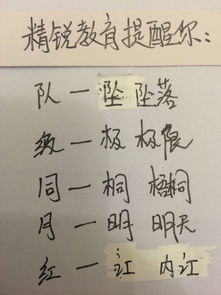 精锐教育提醒你:
队一坠 坠落
级一极 极限
同一桐 梧桐
月一明 明天
红一讧 内讧